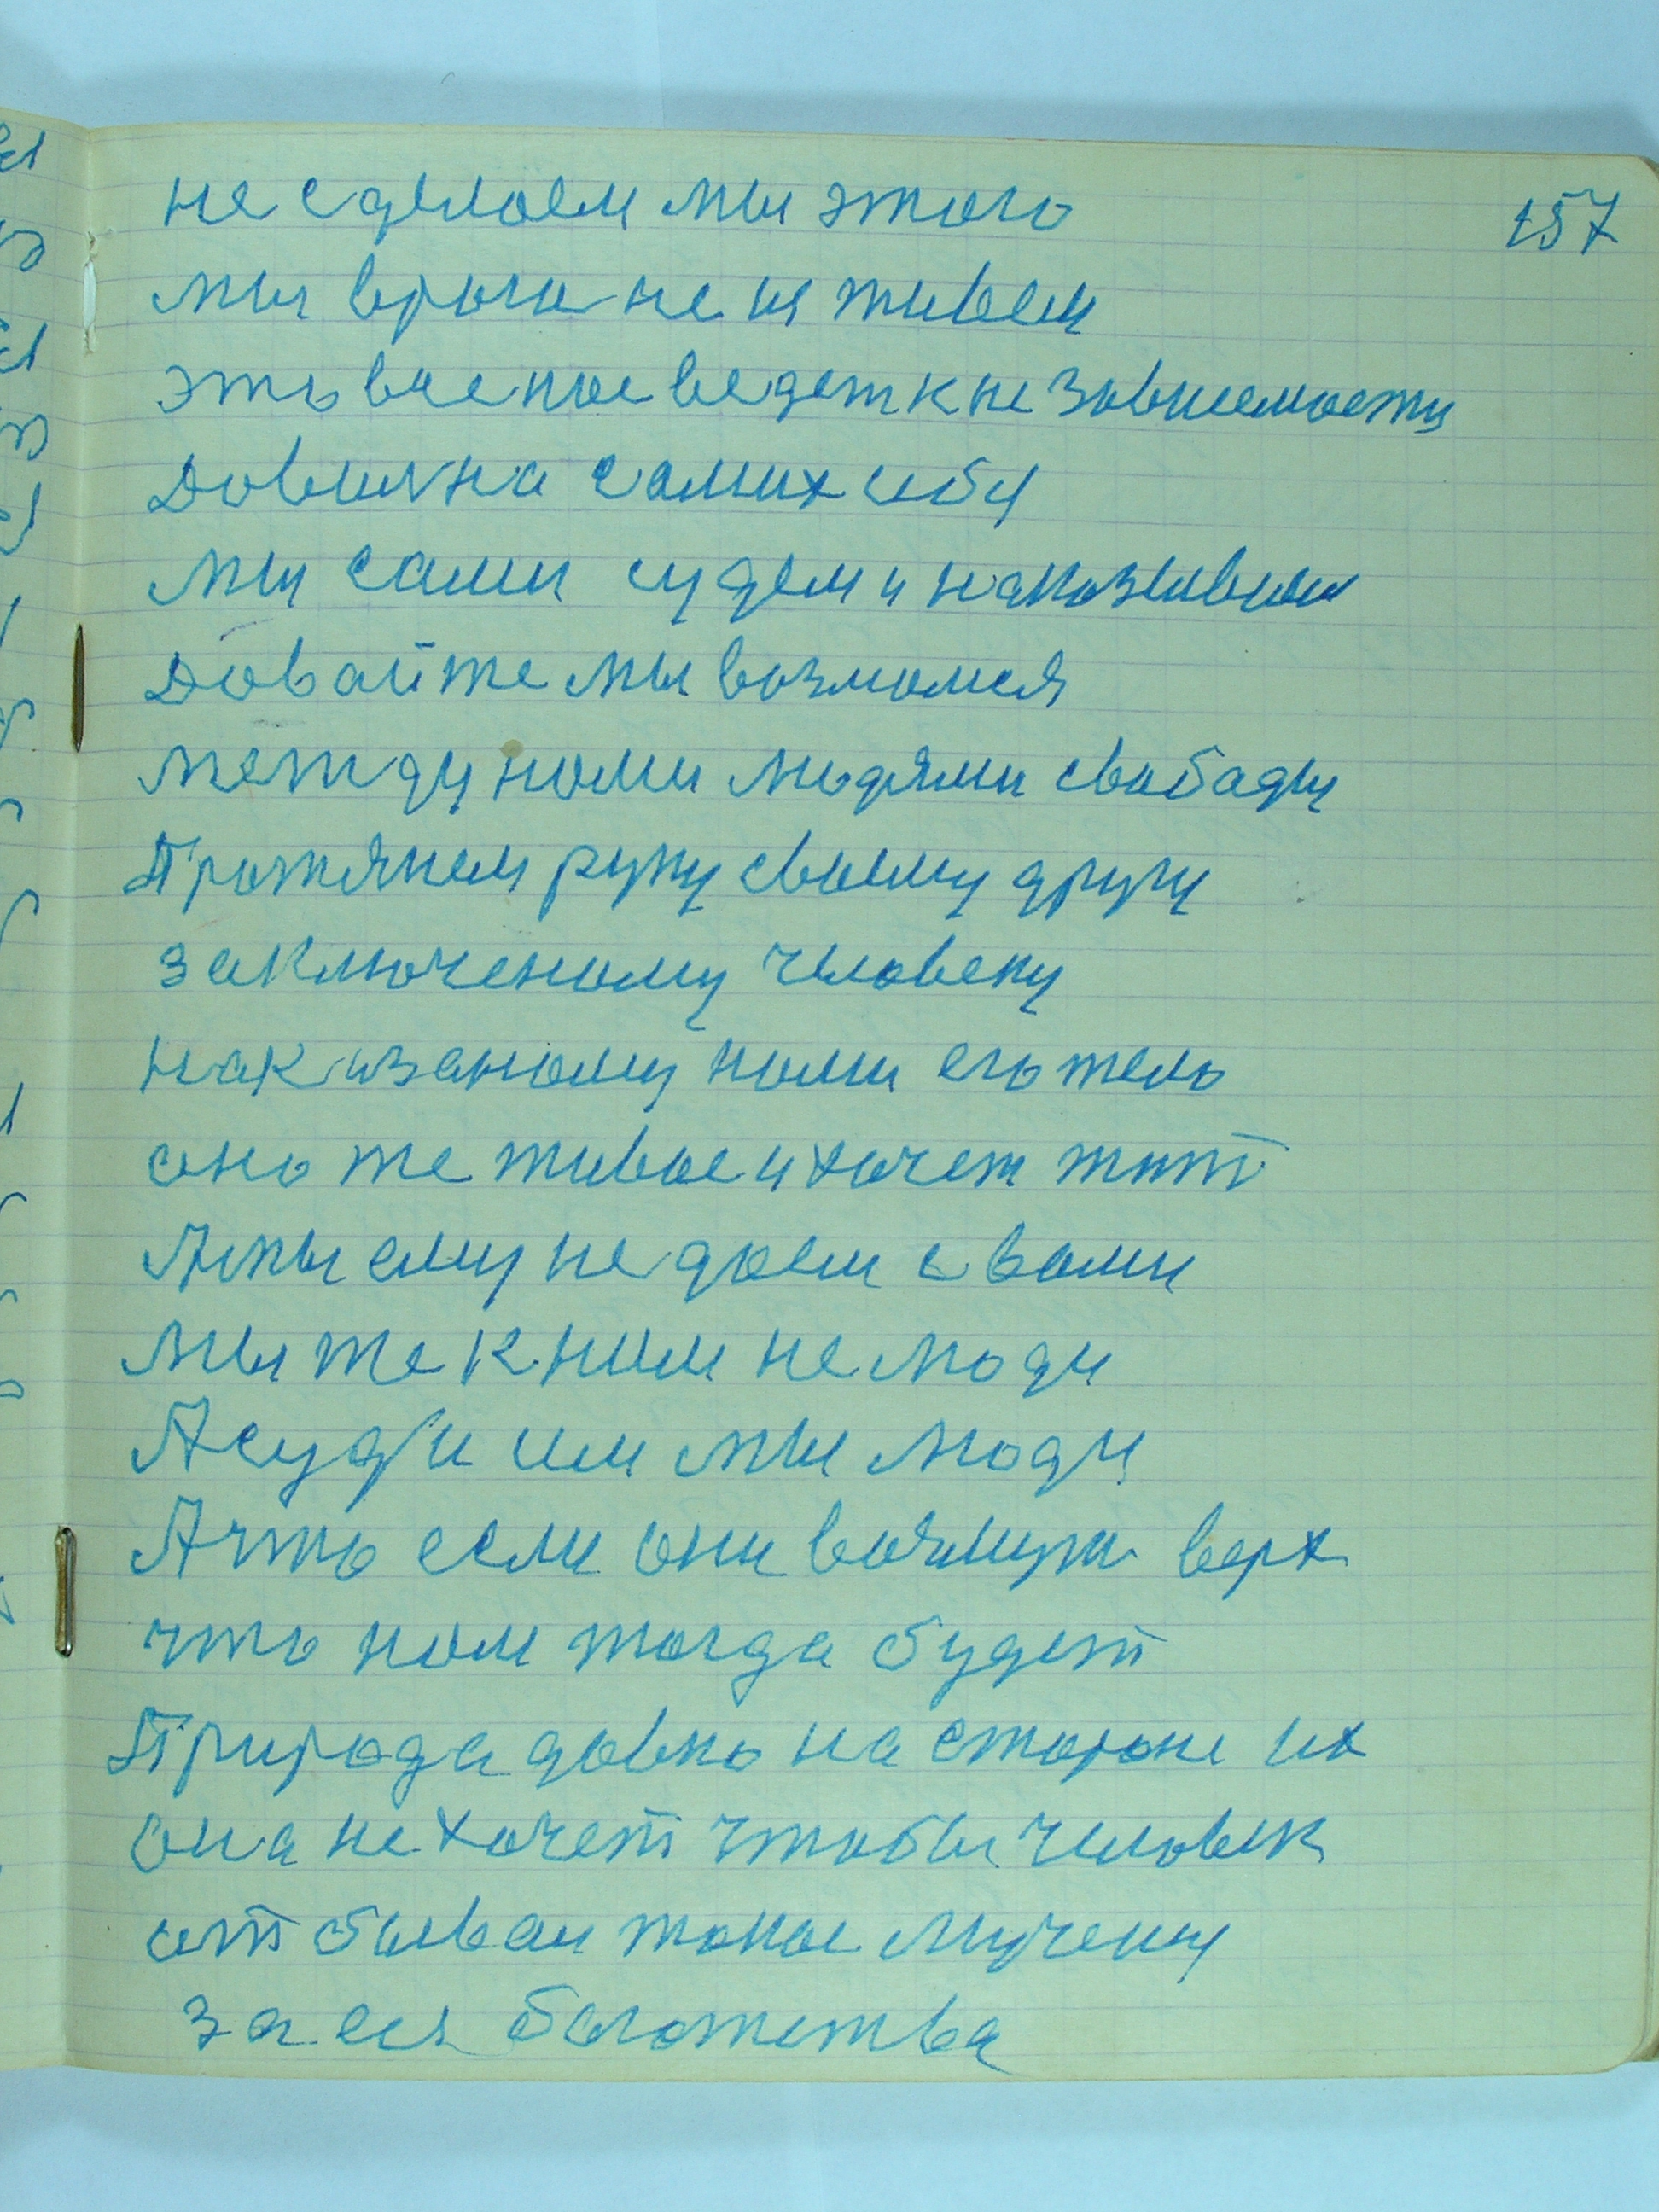 157
не сделоем мы этого
мы врага не и живем
это все нас ведет к не зависемости
Довила на самих себя
мы сами судем и наказывыем
Довайте мы возмомся
между нами людями свободы
Протянем руку своему другу
заключеному человеку
наказаному нами его тело
оно же живое и хочет жит
А мы ему не даем с вами
мы же к ним не люди
А судьи им мы люди
А что если они возмут верх
что нам тогда будет
Природа давно на стороне их
она не хочет чтобы человек
отбывал такое мучения
за ея богатства